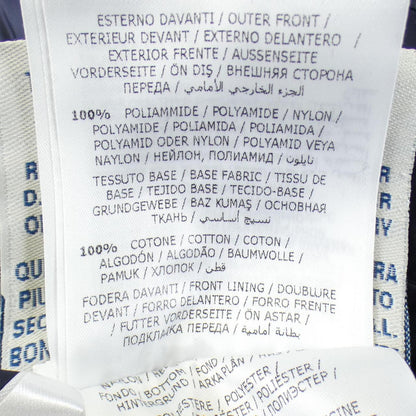 ESTERNO DAVANTI / OUTER FRONT /
EXTERIEUR DEVANT / EXTERNO DELANTERO /
EXTERIOR FRENTE / AUSSENSEITE
VORDERSEITE / ÖN DIŞ / ВНЕШНЯЯ СТОРОНА
ПЕРЕДА / الجزء الخارجي الأمامي /
100% POLIAMMIDE / POLYAMIDE / NYLON /
POLYAMIDE / POLIAMIDA / POLIAMIDA /
POLYAMID ODER NYLON / POLYAMID VEYA
NAYLON / НЕЙЛОН, ПОЛИАМИД / نايلون /
TESSUTO BASE / BASE FABRIC / TISSU DE
BASE / TEJIDO BASE / TECIDO-BASE /
GRUNDGEWEBE / BAZ KUMAŞ / ОСНОВНАЯ
ТКАНЬ / نسيج أساسي /
100% COTONE / COTTON / COTON /
ALGODÓN / ALGODÃO / BAUMWOLLE /
PAMUK / ХЛОПОК / قطن /
FODERA DAVANTI / FRONT LINING / DOUBLURE
DEVANT / FORRO DELANTERO / FORRO FRENTE
/ FUTTER VORDERSEITE / ÖN ASTAR /
ПОДКЛАДКА ПЕРЕДА / بطانة أمامية /
QU
PIU
SEC
BON
RA
FONDO / BOTTOM /
HINTERGRUND / ARKA PLAN /
POLYESTER /
POLIÉSTER /
ПОЛИЭСТЕР /